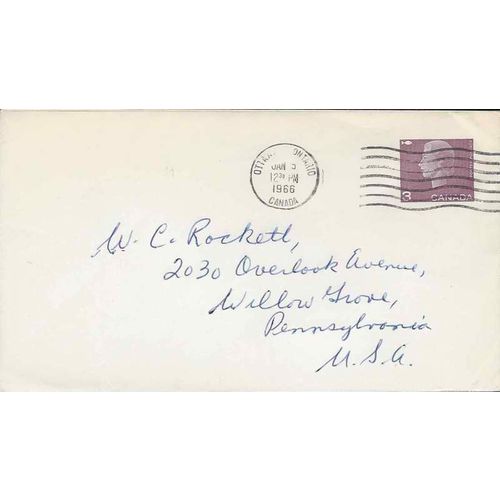 OTTAWA ONTARIO
JAN 5
12 30 PM
1966
CANADA
3 CANADA
W. C. Rockett,
2030 Overlook Avenue,
Willow Grove,
Pennsylvania
U.S.A.